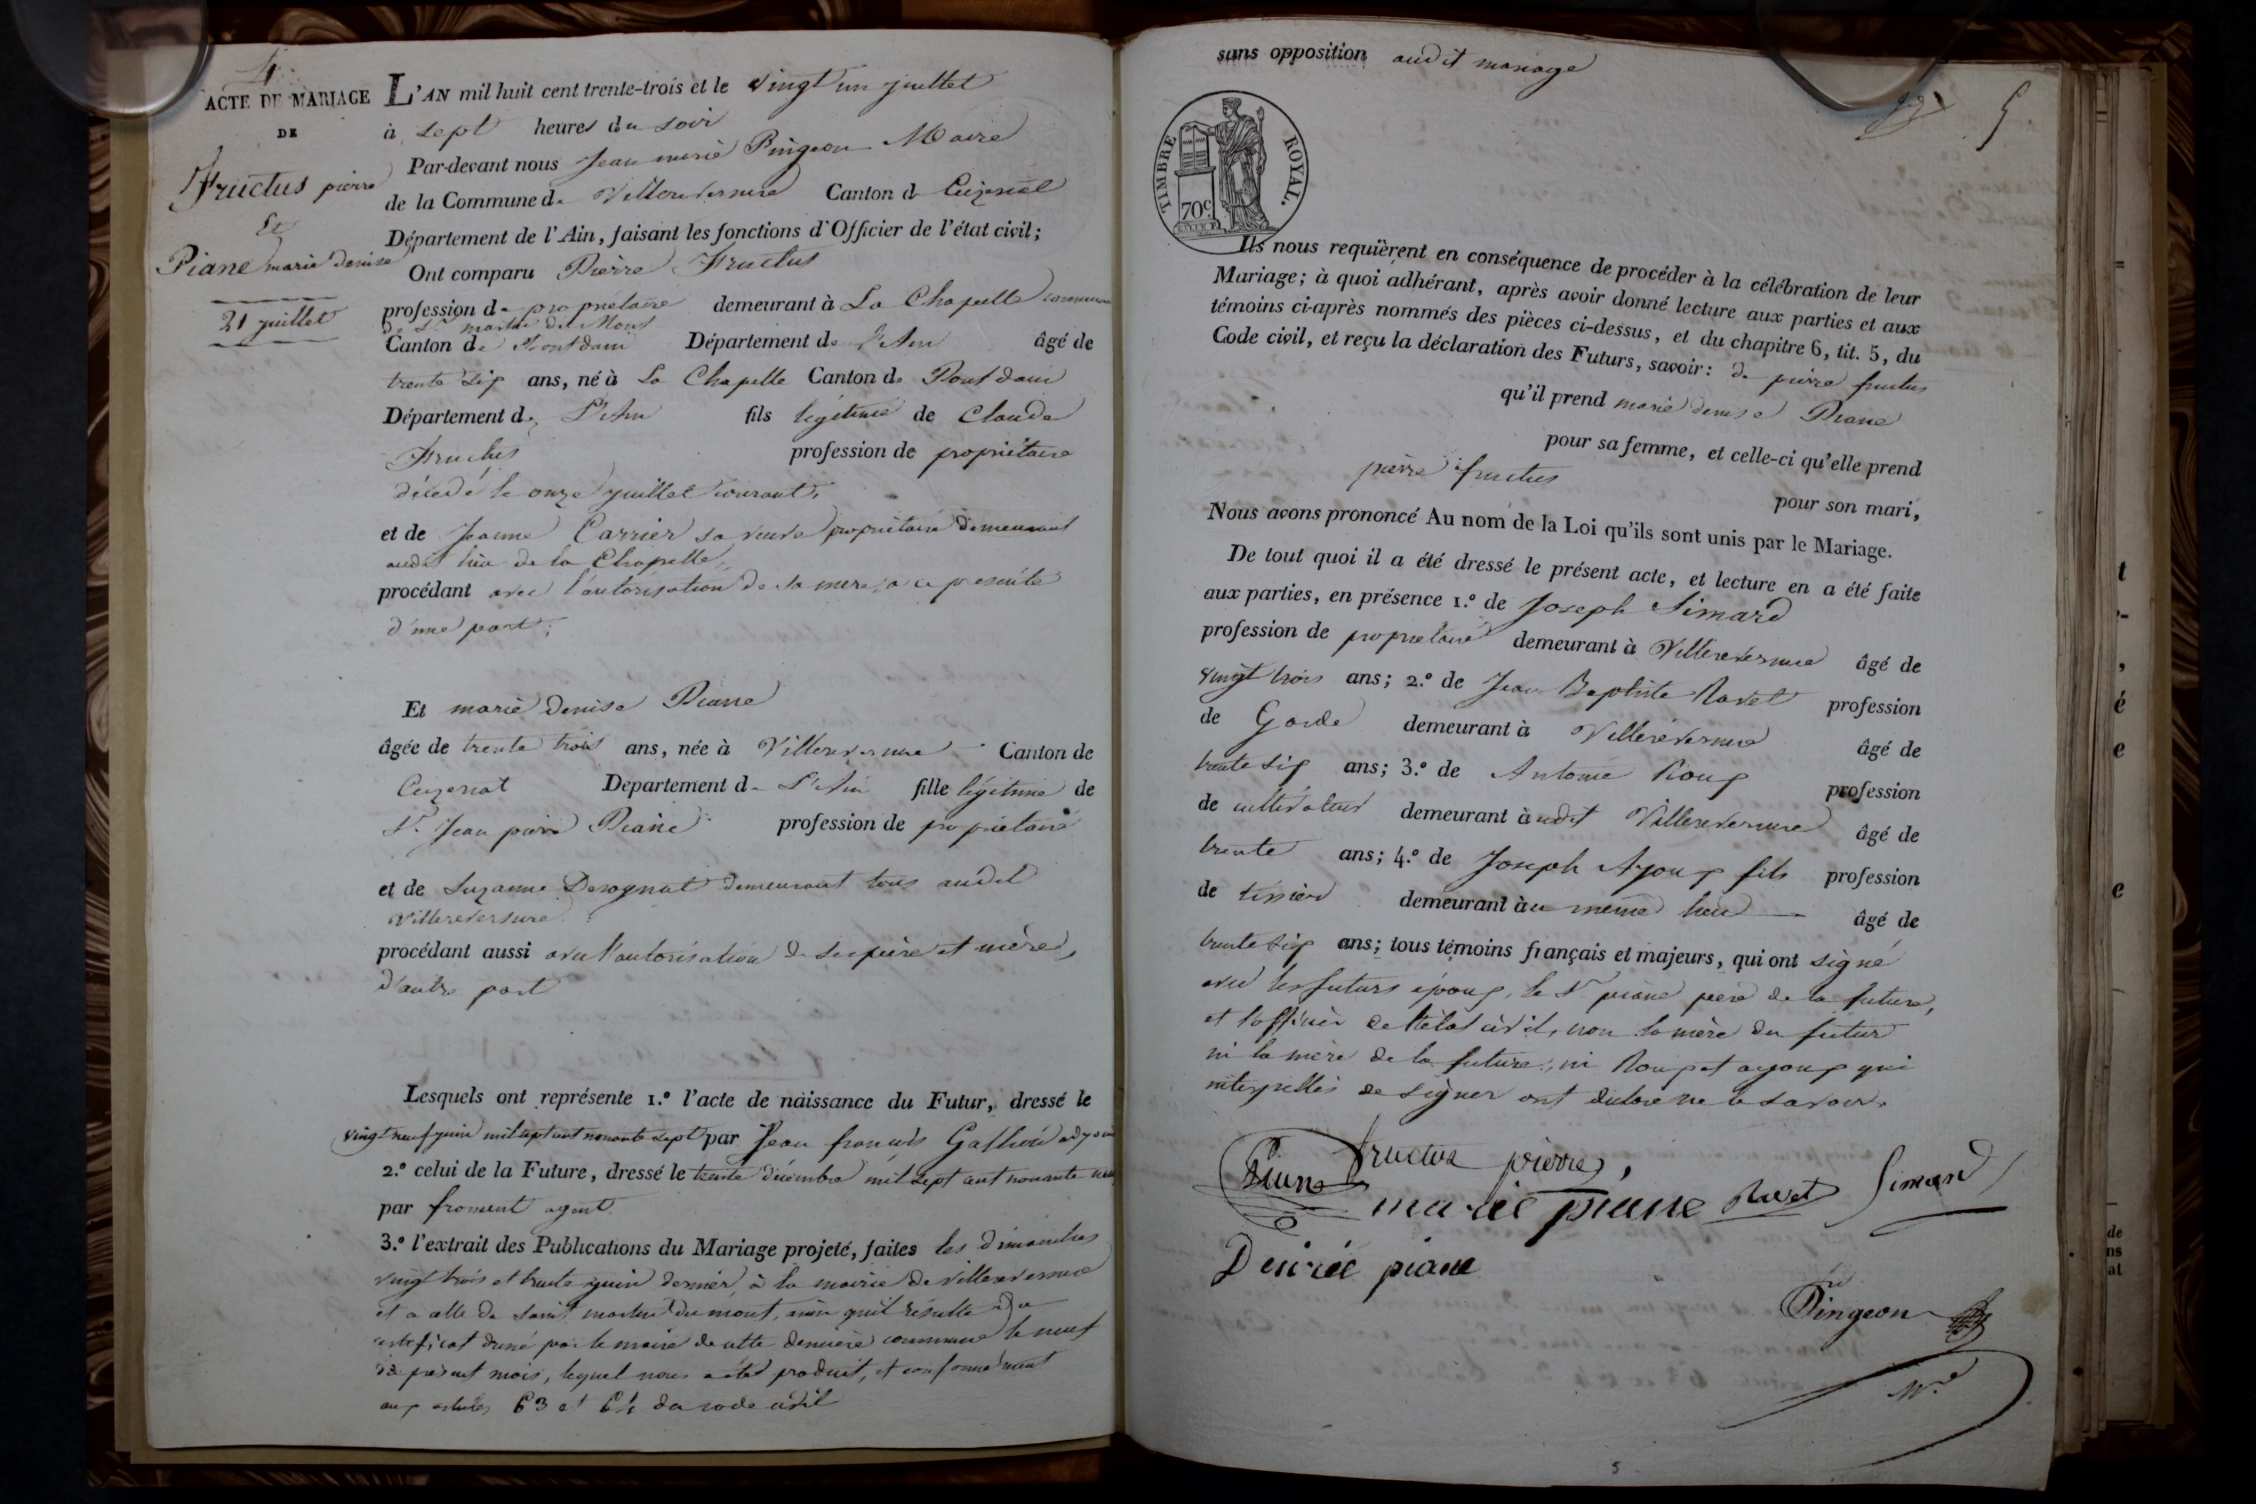 4
ACTE DE MARIAGE
DE
Fructus pierre
Et
Piane marie denise
21 juillet
L'AN mil huit cent trente-trois et le vingt un juillet
à sept heures du soir
Par-devant nous Jean marie Pingeon Maire
de la Commune de Villereversure Canton de Ceyzeriat
Département de l'Ain, faisant les fonctions d'Officier de l'état civil;
Ont comparu Pierre Fructus
profession de propriétaire demeurant à La Chapelle commune
de St martin du Mont
Canton de Pontdain Département de l'Ain âgé de
trente six ans, né à La Chapelle Canton de Pont dain
Département de L'Ain fils légitime de Claude
Fructus profession de propriétaire
décédé le onze juillet courant,
et de Jeanne Carrier sa veuve propriétaire demeurant
audit lieu de la Chapelle,
procédant avec l'autorisation de sa mere, a ce présente
d'une part;
Et marie denise Piane
âgée de trente trois ans, née à Villereversure Canton de
Ceyzeriat Departement de L'Ain fille légitime de
Sr. Jean pierre Piane profession de propriétaire
et de Suzanne demeurant tous audit
Villereversure
procédant aussi avec l'autorisation de ses père et mère,
d'autre part
Lesquels ont représente 1.° l'acte de naissance du Futur, dressé le
vingt neuf juin mil sept cent nonante sept par Jean françois
2.° celui de la Future, dressé le trente décembre mil sept cent nonante neuf
par froment agent
3.° l'extrait des Publications du Mariage projeté, faites les dimanches
vingt trois et trente juin dernier, à la mairie de Villereversure
et a celle de Saint martin du mont, ainsi qu'il résulte du
certificat donné par le maire de cette derniere commune le neuf
du présent mois, lequel nous a été produit, et conformément
aux articles 63 et 64 du code civil
sans opposition audit mariage
5
TIMBRE ROYAL.
70c
Ils nous requièrent en conséquence de procéder à la célébration de leur
Mariage; à quoi adhérant, après avoir donné lecture aux parties et aux
témoins ci-après nommés des pièces ci-dessus, et du chapitre 6, tit. 5, du
Code civil, et reçu la déclaration des Futurs, savoir: de pierre fructus
qu'il prend marie denise Piane
pour sa femme, et celle-ci qu'elle prend
pierre fructus
pour son mari,
Nous avons prononcé Au nom de la Loi qu'ils sont unis par le Mariage.
De tout quoi il a été dressé le présent acte, et lecture en a été faite
aux parties, en présence 1.° de Joseph Simard
profession de propriétaire demeurant à Villereversure âgé de
vingt trois ans; 2.° de Jean Baptiste Ravet profession
de Garde demeurant à Villereversure âgé de
trente six ans; 3.° de Antoine Roux profession
de cultivateur demeurant àudit Villereversure âgé de
trente ans; 4.° de Joseph Ayoux fils profession
de tissier demeurant àu meme lieu âgé de
trente six ans; tous témoins français et majeurs, qui ont signé
avec les futurs époux, le Sr piane pere de la future,
et l'officier de l'état civil, non la mère du futur
ni la mère de la future, ni Roux et ayoux qui
interpellés de signer ont déclaré ne le savoir.
Piane fructus pierre,
marie piane Ravet Simard
Desirée piane
Pingeon
Mre
5